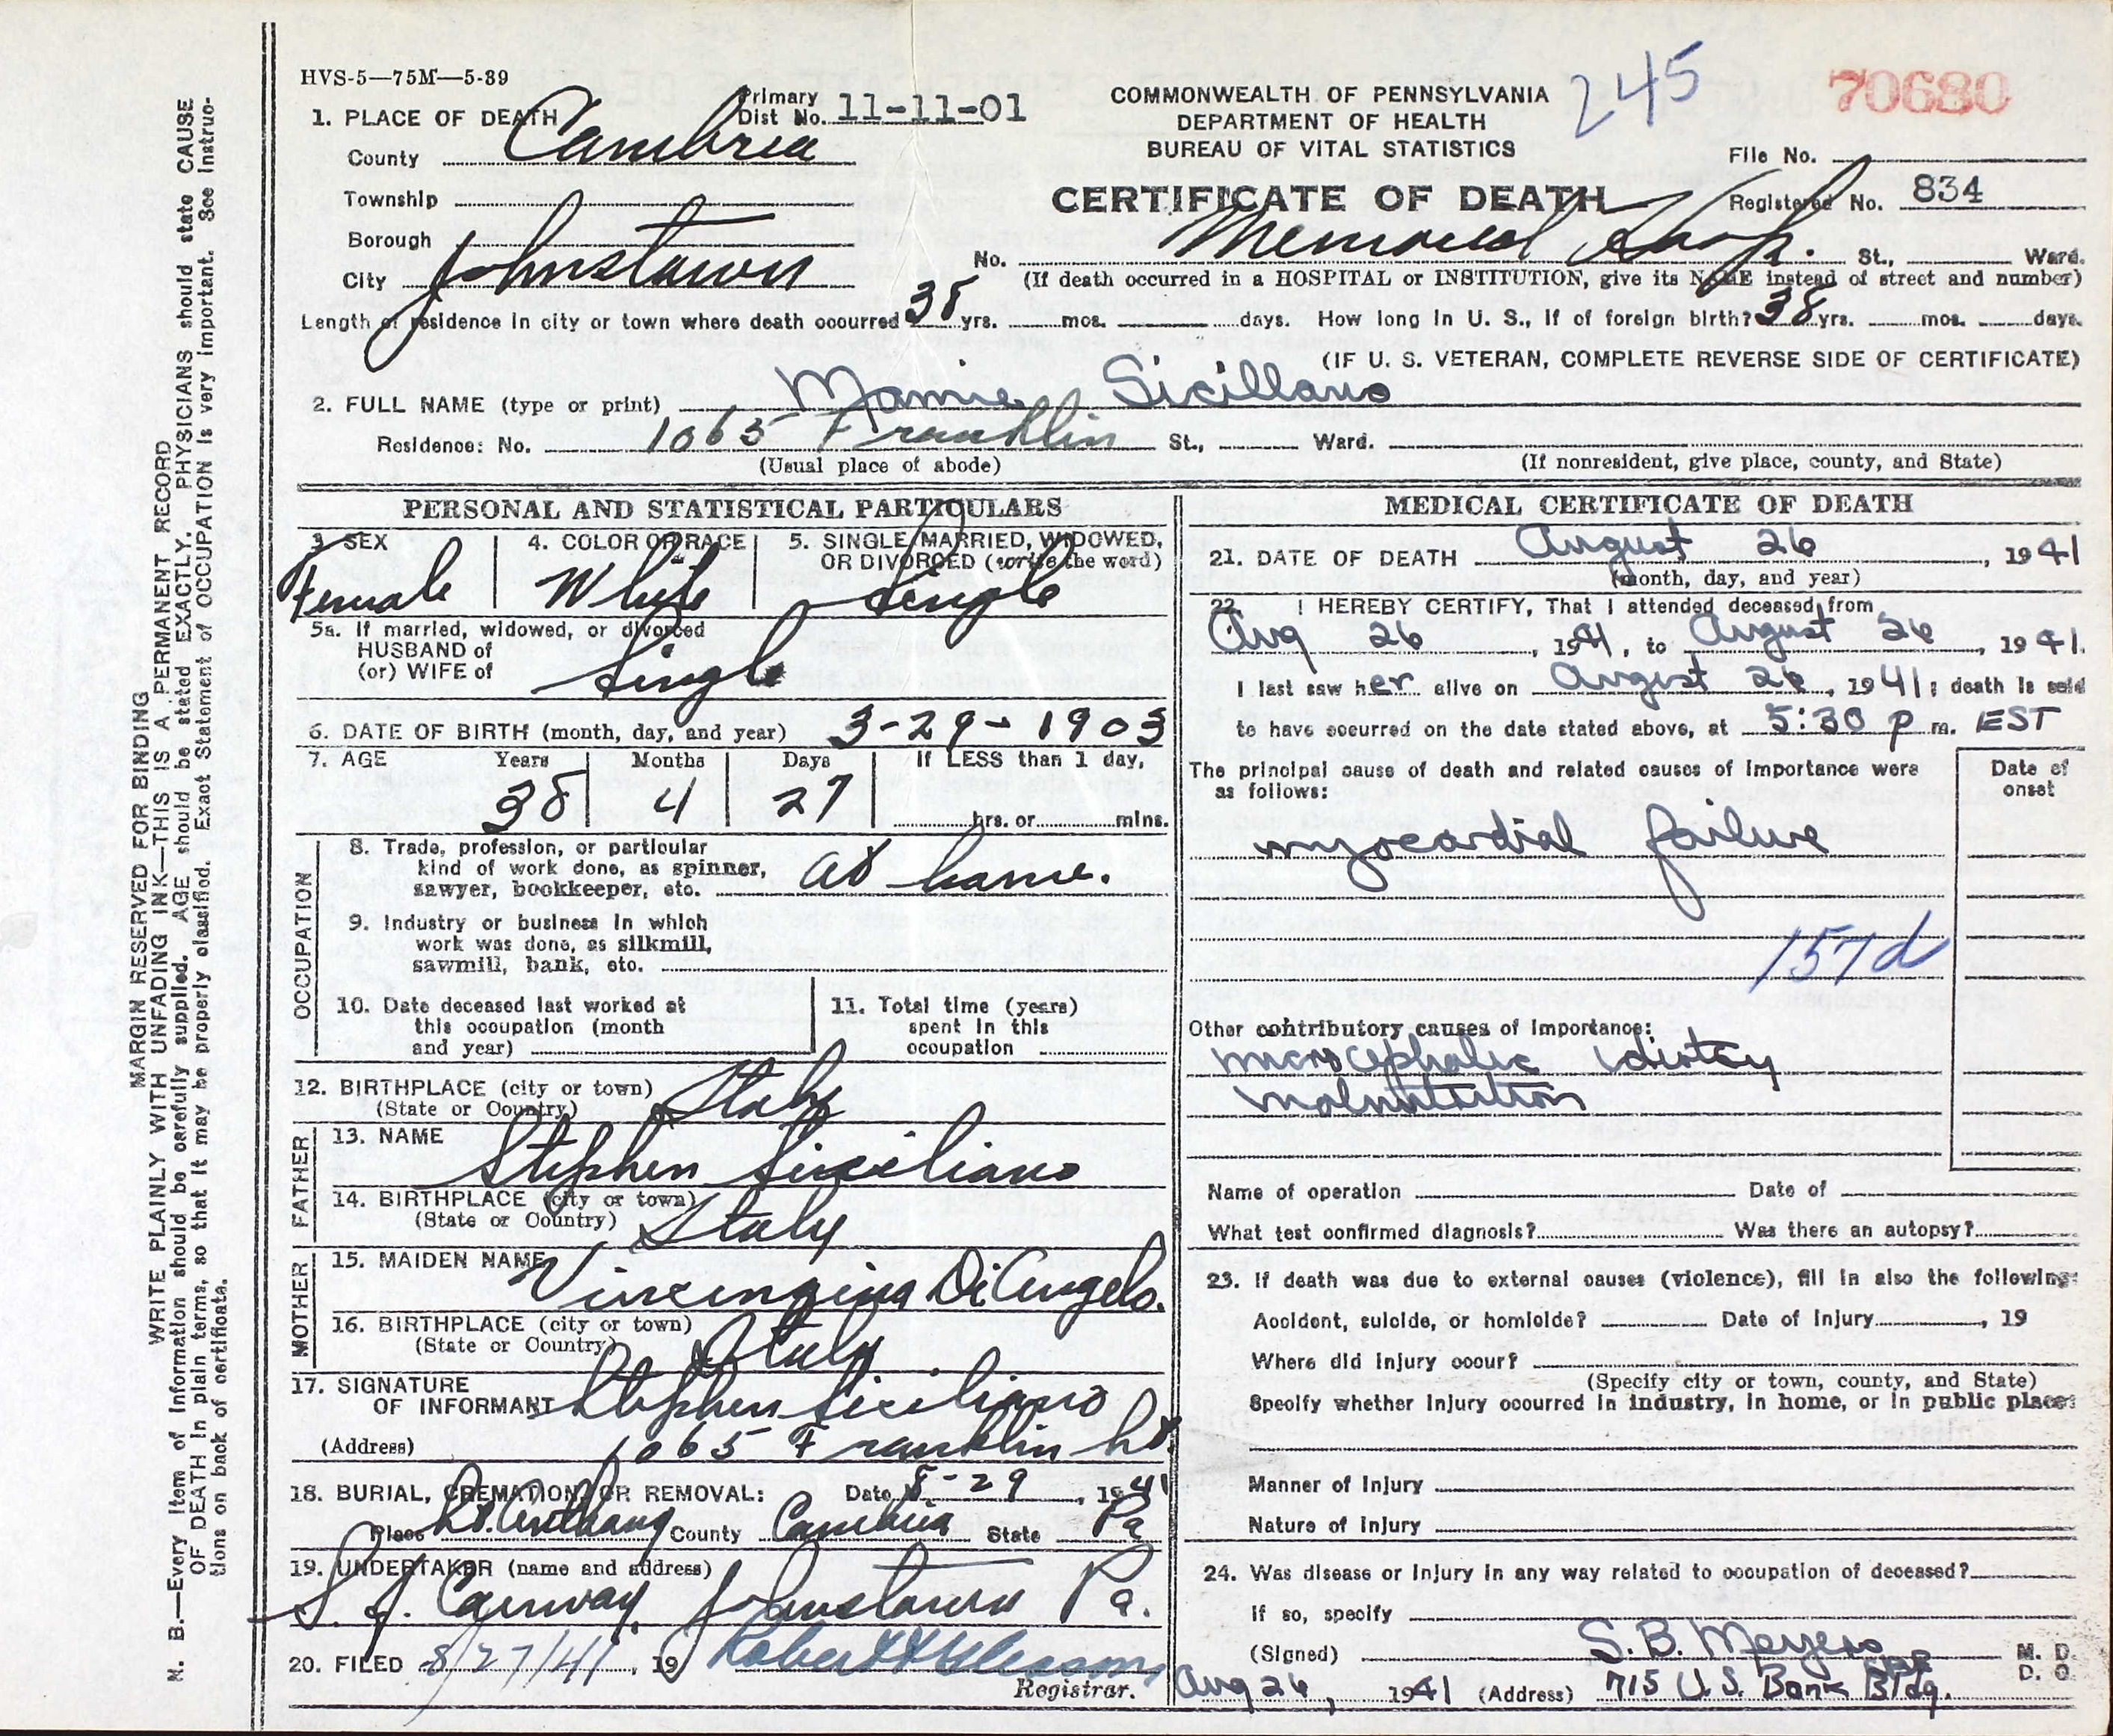 HVS-5—75M—5-39
245
70680
COMMONWEALTH OF PENNSYLVANIA
DEPARTMENT OF HEALTH
BUREAU OF VITAL STATISTICS
CERTIFICATE OF DEATH
Primary
Dist No. 11-11-01
File No.
Registered No. 834
1. PLACE OF DEATH
County Cambria
Township
Borough
City Johnstown
No. Memorial Hosp. St., Ward.
(If death occurred in a HOSPITAL or INSTITUTION, give its NAME instead of street and number)
Length of residence in city or town where death occurred 38 yrs. mos. days. How long in U. S., if of foreign birth? 38 yrs. mos. days.
(IF U. S. VETERAN, COMPLETE REVERSE SIDE OF CERTIFICATE)
2. FULL NAME (type or print) Mamie Sicillano
Residence: No. 1065 Franklin St., Ward.
(Usual place of abode)
(If nonresident, give place, county, and State)
PERSONAL AND STATISTICAL PARTICULARS
3. SEX
Female
4. COLOR OR RACE
White
5. SINGLE, MARRIED, WIDOWED,
OR DIVORCED (write the word)
Single
5a. If married, widowed, or divorced
HUSBAND of
(or) WIFE of
Single
6. DATE OF BIRTH (month, day, and year) 3-29-1903
7. AGE Years Months Days If LESS than 1 day,
38 4 27 hrs. or mins.
OCCUPATION
8. Trade, profession, or particular
kind of work done, as spinner,
sawyer, bookkeeper, etc. at home.
9. Industry or business in which
work was done, as silkmill,
sawmill, bank, etc.
10. Date deceased last worked at
this occupation (month
and year)
11. Total time (years)
spent in this
occupation
12. BIRTHPLACE (city or town)
(State or Country) Italy
FATHER
13. NAME
Stephen Siciliano
14. BIRTHPLACE (city or town)
(State or Country) Italy
MOTHER
15. MAIDEN NAME
DiAngelo.
16. BIRTHPLACE (city or town)
(State or Country) Italy
17. SIGNATURE
OF INFORMANT Stephen Siciliano
(Address) 1065 Franklin St.
18. BURIAL, CREMATION, OR REMOVAL: Date 8-29, 1941
Place St. Anthony County Cambria State Pa
19. UNDERTAKER (name and address)
Johnstown Pa.
20. FILED 8/27/41, 19
Registrar.
MEDICAL CERTIFICATE OF DEATH
21. DATE OF DEATH August 26, 1941
(month, day, and year)
22. I HEREBY CERTIFY, That I attended deceased from
Aug 26, 1941, to August 26, 1941.
I last saw her alive on August 26, 1941; death is said
to have occurred on the date stated above, at 5:30 p m. EST
The principal cause of death and related causes of importance were
as follows:
Date of
onset
myocardial failure
157d
Other contributory causes of importance:
microcephalic idiotcy
malnutrition
Name of operation Date of
What test confirmed diagnosis? Was there an autopsy?
23. If death was due to external causes (violence), fill in also the following:
Accident, suicide, or homicide? Date of injury, 19
Where did injury occur?
(Specify city or town, county, and State)
Specify whether injury occurred in industry, in home, or in public place:
Manner of injury
Nature of injury
24. Was disease or injury in any way related to occupation of deceased?
If so, specify
(Signed) S. B. Meyers M. D.
D. O.
Aug 26, 1941 (Address) 715 U.S. Bank Bldg.
MARGIN RESERVED FOR BINDING
WRITE PLAINLY WITH UNFADING INK—THIS IS A PERMANENT RECORD
N. B.—Every item of information should be carefully supplied. AGE should be stated EXACTLY. PHYSICIANS should state CAUSE
OF DEATH in plain terms, so that it may be properly classified. Exact Statement of OCCUPATION is very important. See instruc-
tions on back of certificate.